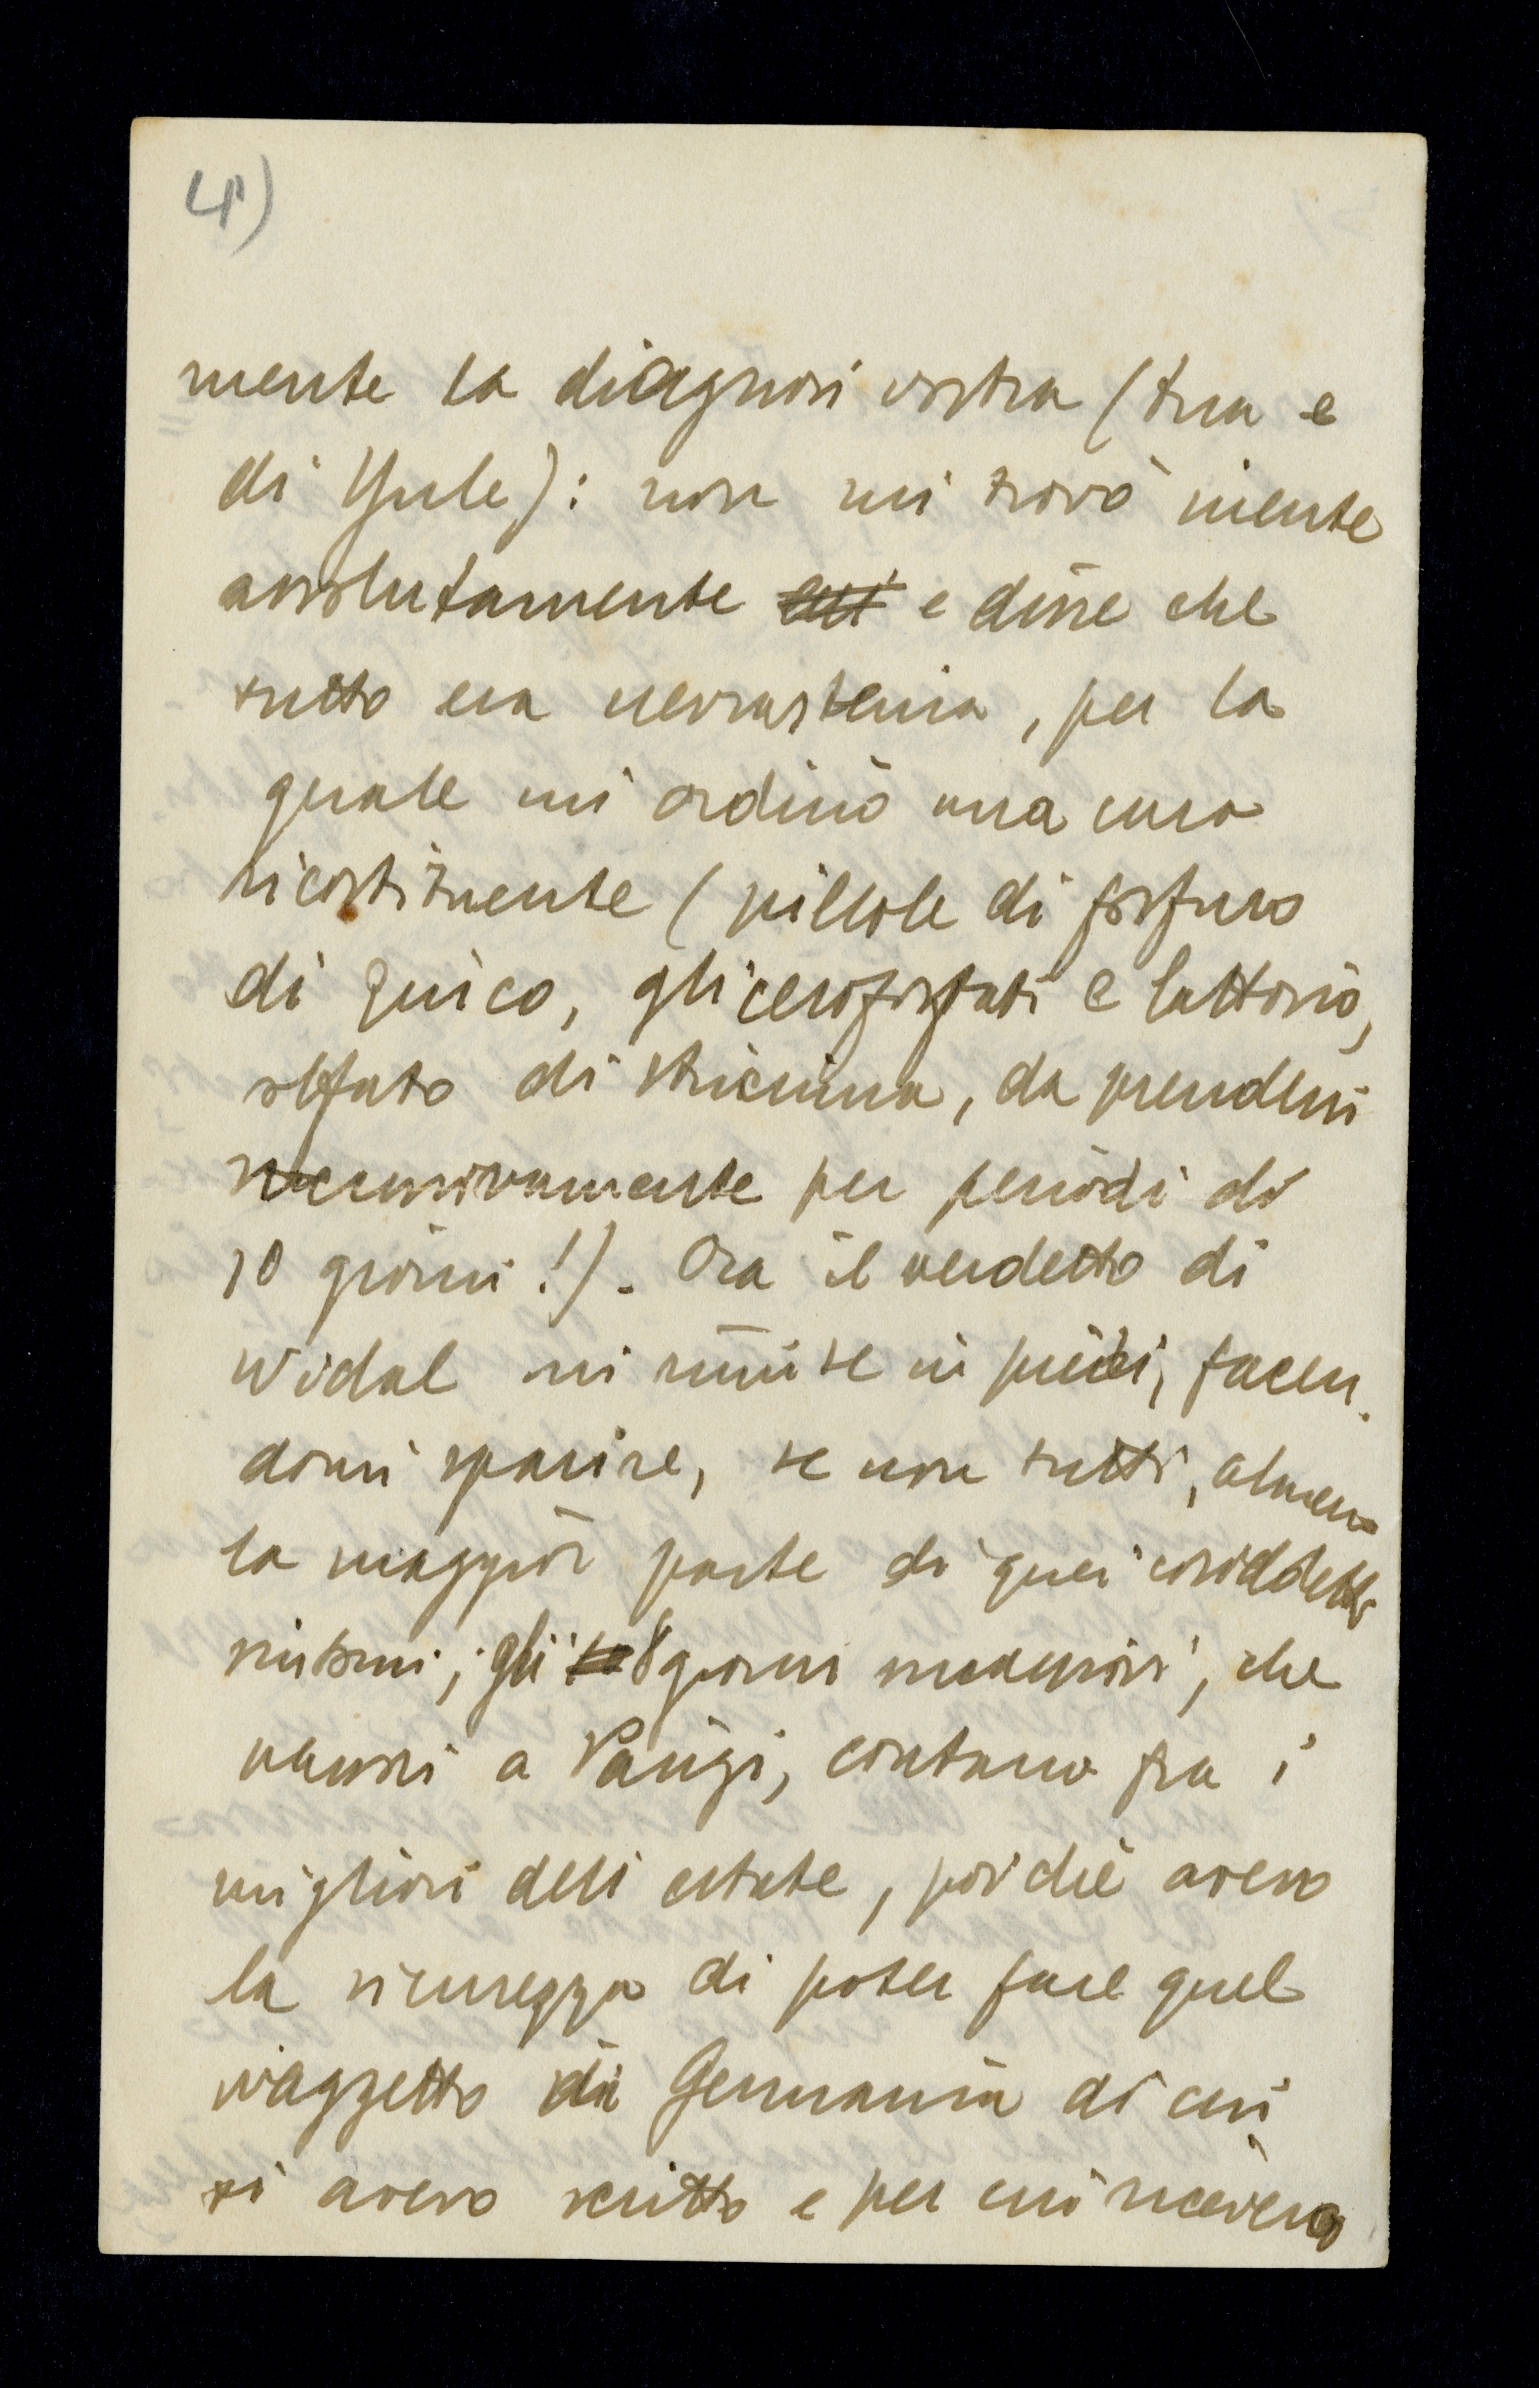 4)
mente la diagnosi vostra (tua e
di Yule): non mi trovò niente
assolutamente e disse che
tutto era nevrastenia, per la
quale mi ordinò una cura
ricostituente (pillole di fosfuro
di zinco, glicerofosfati e lattosio,
solfato di stricnina, da prendersi
successivamente per periodi di
10 giorni!). Ora il verdetto di
Widal mi rimise in piedi, facen-
domi sparire, se non tutti, almeno
la maggior parte di quei cosiddetti
sintomi; gli 8 giorni successivi, che
passai a Parigi, contano fra i
migliori dell'estate, poichè avevo
la sicurezza di poter fare quel
viaggetto in Germania di cui
ti avevo scritto e per cui ricevevo